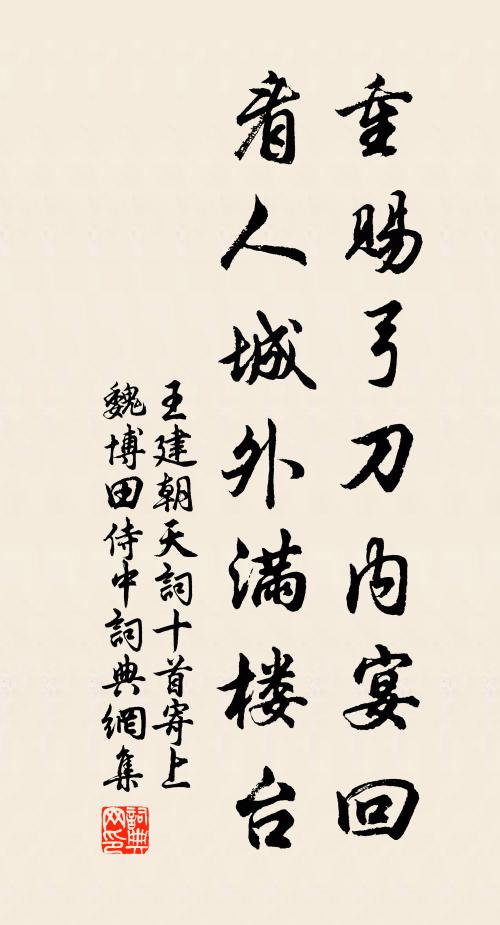 重赐弓刀内宴回
看人城外满楼台
王建朝天詞十首寄上
魏博田侍中詞典網集
詞典
网印